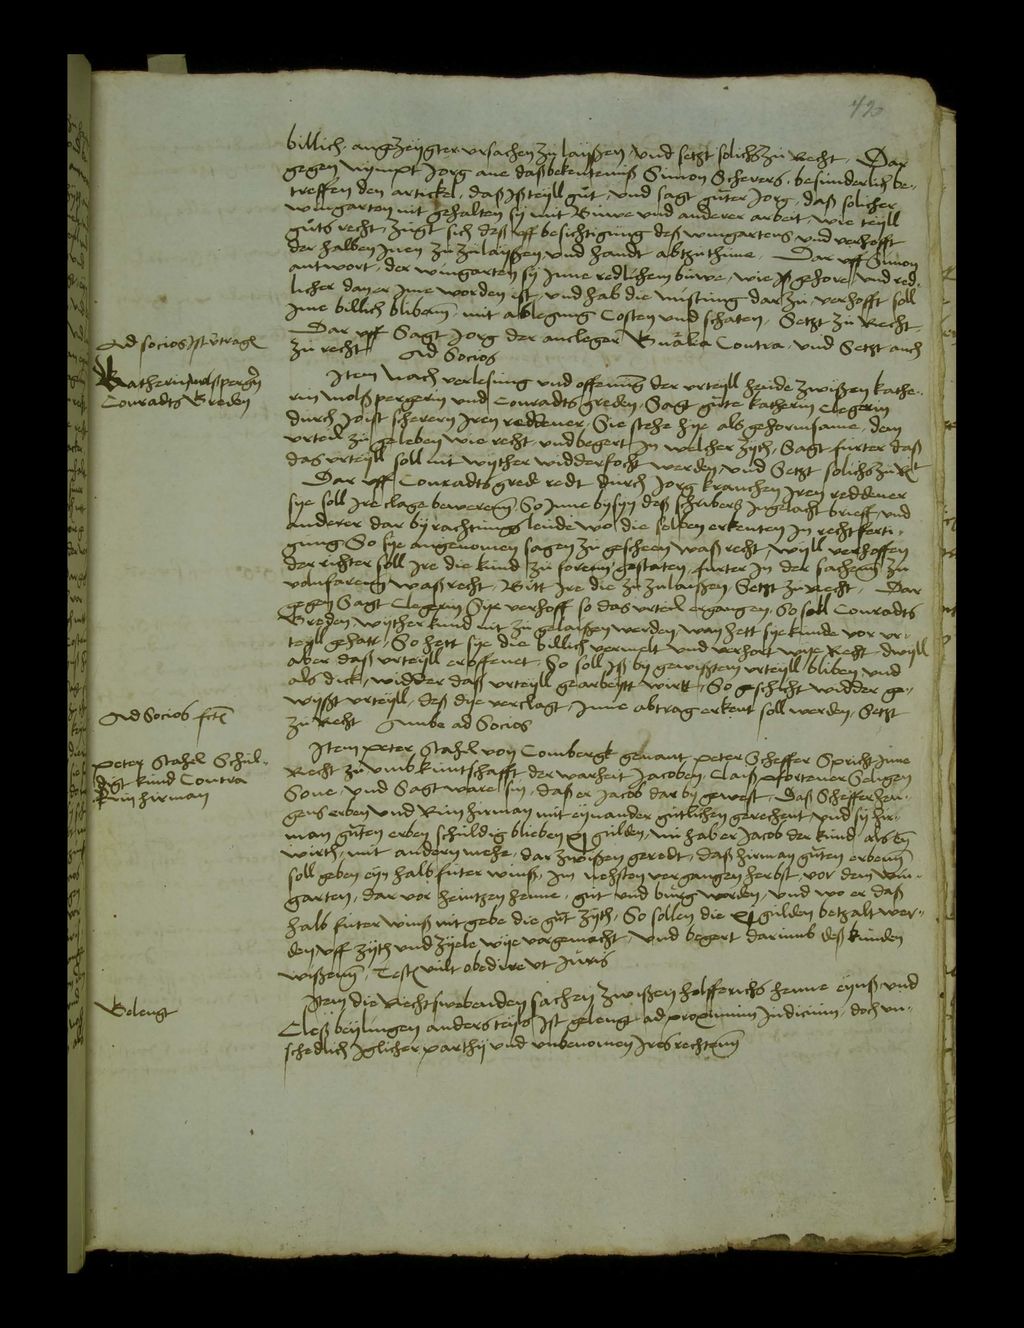 420
billich angezeygter ursachen zu laißen und setzt solichs zu Recht. Dar
gegen nympt Jorg ane daß bekentenniß Simon Scherers, besunderlich be-
treffen den artickel, daß Iß teyll gut, und sagt guter Jorg, daß solicher
wingarten nit gehalten sy mit Buwe und anderer arbeit, wie teyll
guts recht, zugt sich deß uff besichtigung deß wingartens und verhofft
der halben Inen zuzulaißen und handt abzuthune. Dar uff Simon
antwort, der wingarten sy Inne redlichem buwe, wie Iß gehore, und red-
licher dan er Ime worden ist, und hab die mistung dar zu, verhofft soll
Ime billich bliben, mit ablegung Costen und schaten, Setzt zu Recht.
Dar uff Sagt Jorg der ancleger Gnalia Contra, und Setzt auch
zu recht Ad Socios
Ad socios Ist ußtragen
Katherin wolffspergerin
Conradts Greden
Item Nach verlesung und offenung der urteyll hende zwißen kathe-
rin wolffspergerin und Conradts greden, Sagt gute katherin Clegerin
durch Joist scherern Iren reddener, Sie stehe hye als gehorinsame, dem
urteil zu geleben wie recht, und begert In welcher zyth, Sagt furter daß
das urteyll soll nit wyther widderfocht werden, und Setzt solichs zu Rt
Dar uff Conradts grede redt durch Jorg krauchen Iren reddener
sye soll Ire clage beweren, So Inne bysyn deß schribers Ingelacht brieff, und
anderer dar by rachtungs leude wo die selben erkenten In rechtferti-
gung So sye angenomen sagen zu gescheen waß recht, wyll verhoffen
der richter soll Ire die kund zu foren gestaten, furter In der sachen zu
vollnfaren waß recht, Bitt Ire die zuzulaißen, Setzt zu Recht. Dar
gegen Sagt Clegerin Sye verhoff so das urteil ergangen, So soll Conradts
Greden wyther kund nit zu gelaißen werden, wan hett sye kunde vor ur-
teyll gehatt, So hett sye die billich vermelt und verhort wye Recht, dwyll
aber daß urteyll eroffenet, So soll Iß by gewißtem urteyll bliben, und
als dick, widder daß urteyll gearbeytt wirtt, So geschicht widder ge-
wyßt urteyll, deß dye verclagt, Inne abtrag erkent soll werden, Setzt
zu Recht Ambe ad Socios
Ad Socios fct
Peter Stahel Schul-
digt kund Contra
Rin hirman
Item Peter Stahel von Combergk genant Peter Scheffer Spricht Inne
Recht zu umb kuntschafft der warheit Jacoben, Claiß Portener Seligen
Sone, und Sagt ware sin, daß er Jacob dar by gewest, Daß Schefferhen-
gens erben und Rin hirman mit eynander gutlichen gerechent, und sy hir-
man guten erben schuldig blieben xj gulden, nu hab er Jacob der kund als eyn
wirth, mit andern mehe, dar zwißen geredt, daß hirman guten erben
soll geben eyn halb futer winß, Im nehsten vergangen herbst, vor dem win-
garten, dar vor heintzen henne, gut und burg worden, und wo er daß
halb futer winß nit gebe die gut zyth, So sollen die xj gulden betzalt wer-
den uff zyth und zyele wye vorgemacht, und begert dar umb deß kunden
wißen, Testis vult obedire ut Juris
Gelengt
Item die Rechtswebenden sachen zwißen holfferichs henne eynß, und
Cleß beylingen andersteils Ist gelengt ad proximum Judicium, doch un-
schedlich Iglicher parthy und unbenomen Ires rechten